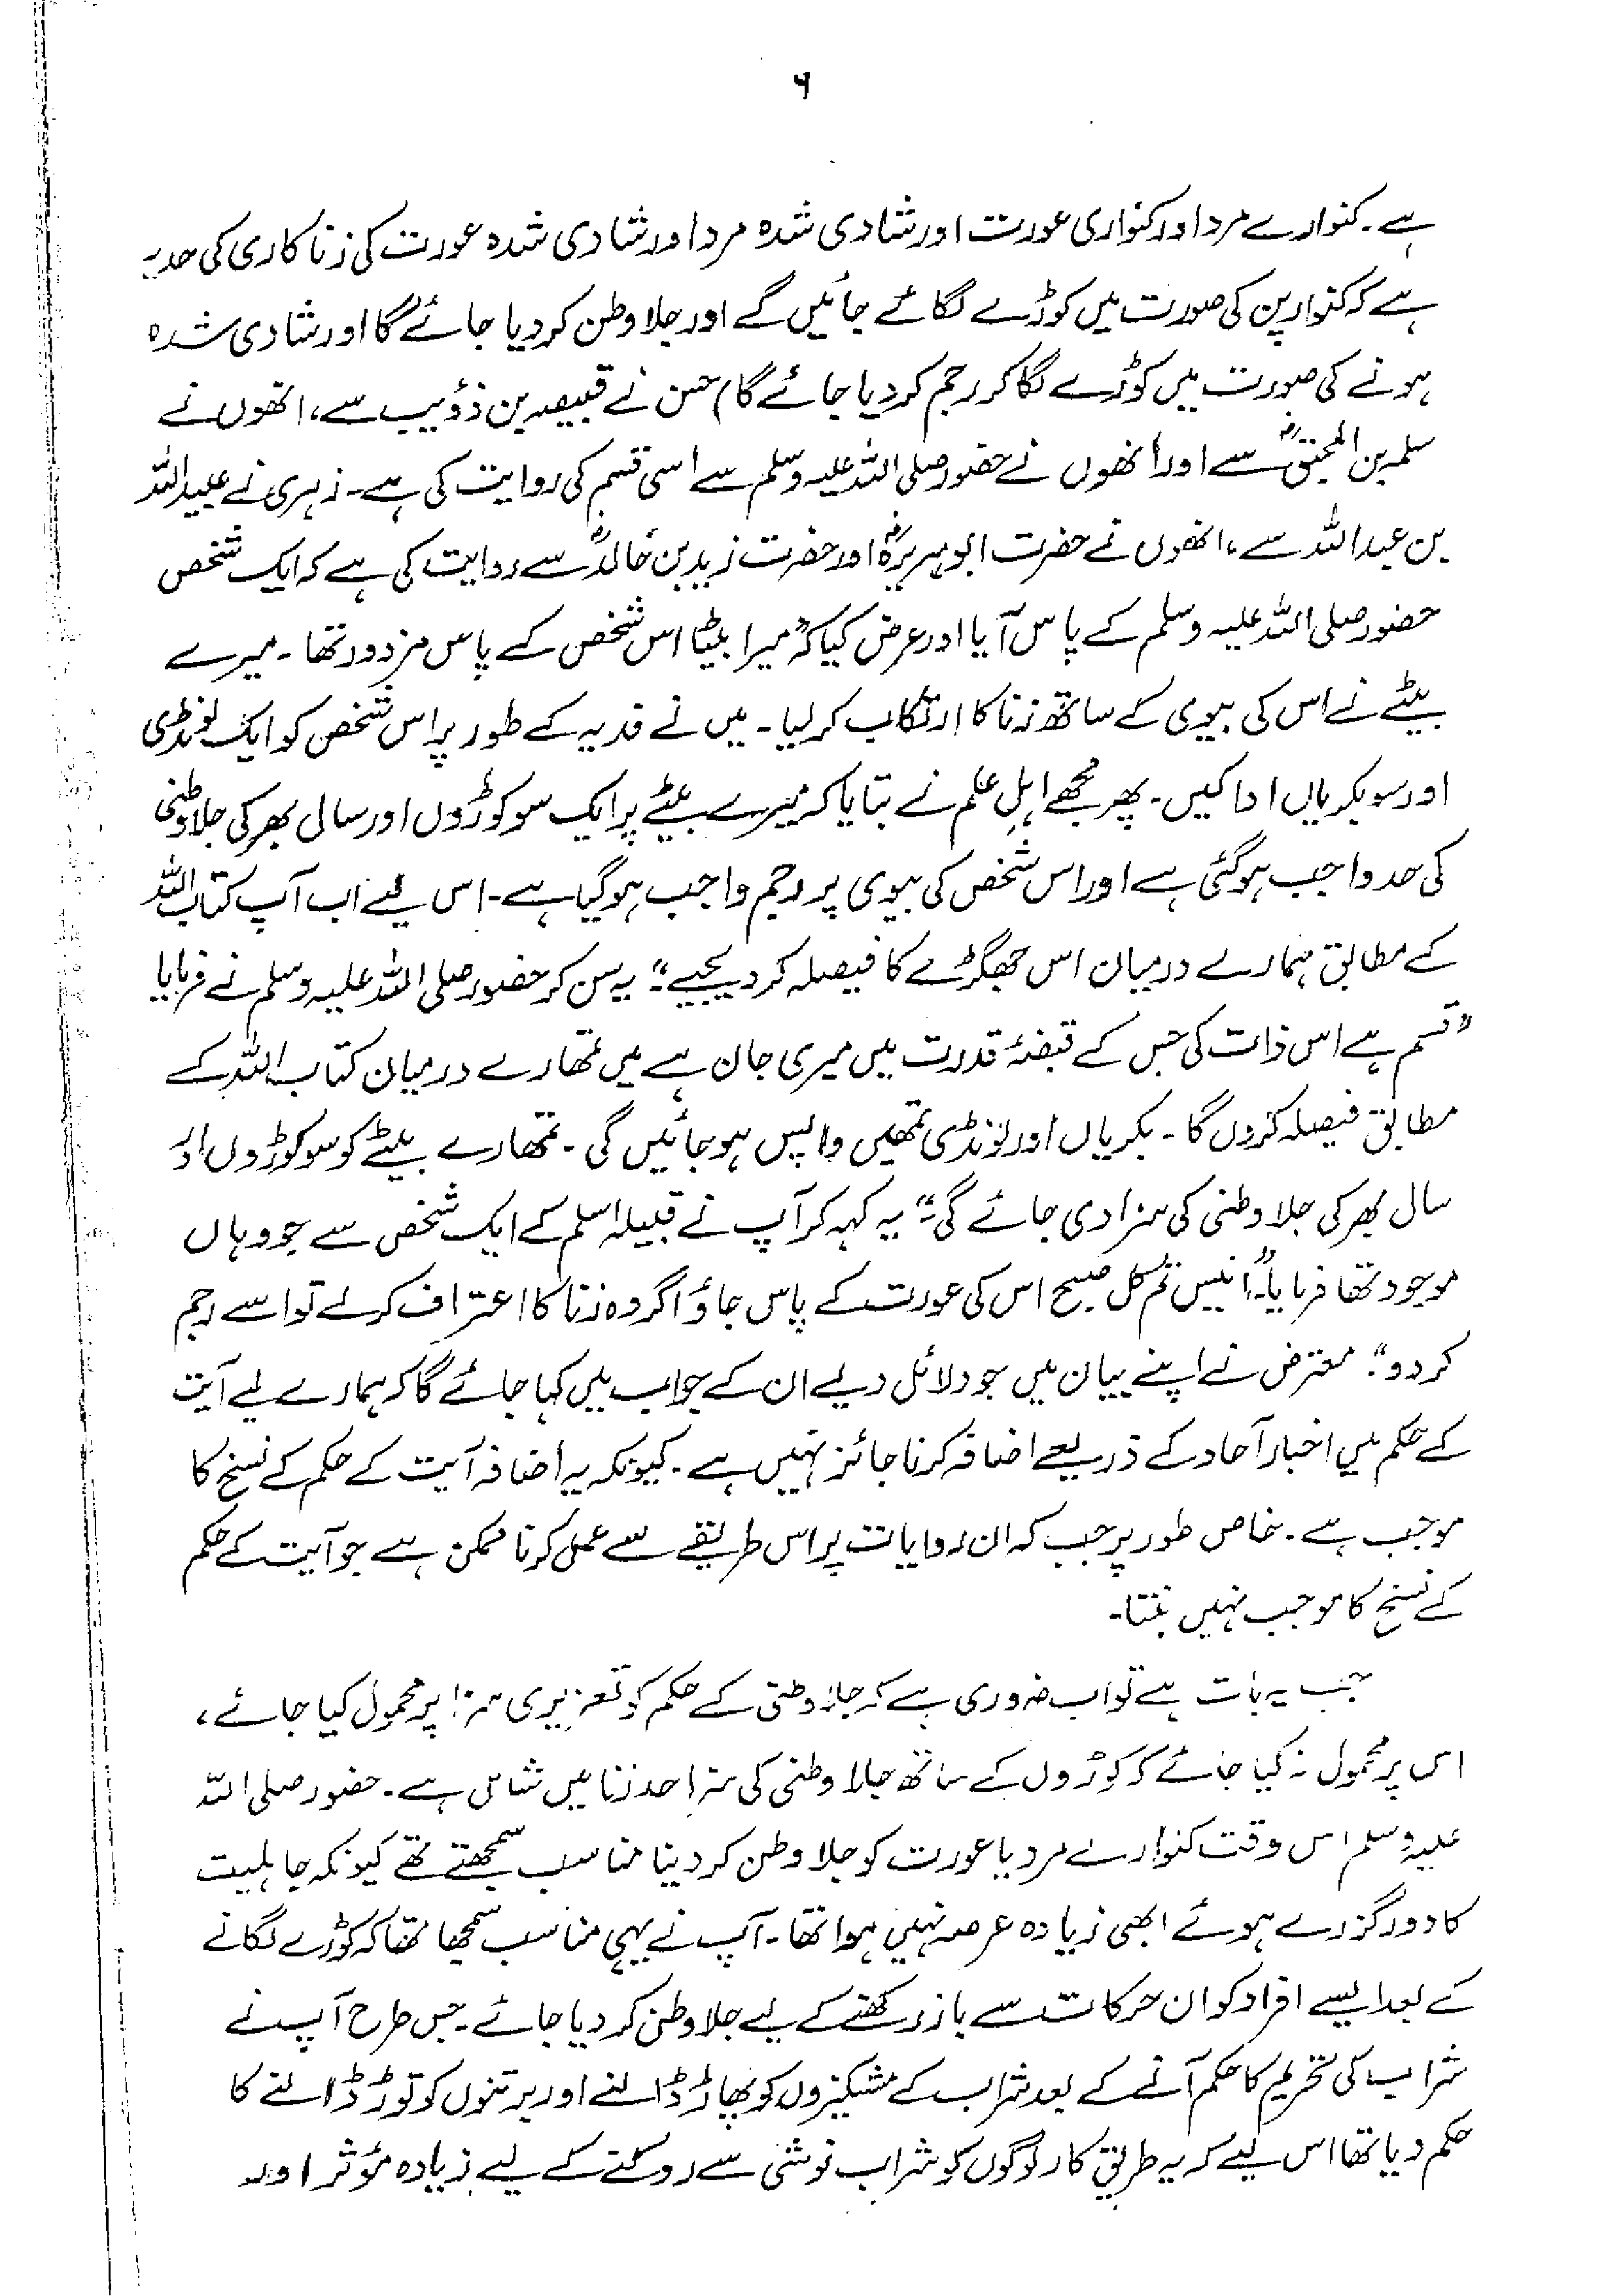 ۶
ہے۔ کنوارے مرد اور کنواری عورت اور شادی شدہ مرد اور شادی شدہ عورت کی زنا کاری کی حد یہ
ہے کہ کنوارپن کی صورت میں کوڑے لگائے جائیں گے اور جلا وطن کر دیا جائے گا اور شادی شدہ
ہونے کی صورت میں کوڑے لگا کر رجم کر دیا جائے گا) حسن نے قبیصہ بن ذؤیب سے، انھوں نے
سلمہ بن المحبقؓ سے اور انھوں نے حضور صلی اللہ علیہ وسلم سے اسی قسم کی روایت کی ہے۔ زہری نے عبید اللہ
بن عبد اللہ سے، انھوں نے حضرت ابو ہریرہؓ اور حضرت زید بن خالدؓ سے روایت کی ہے کہ ایک شخص
حضور صلی اللہ علیہ وسلم کے پاس آیا اور عرض کیا کہ "میرا بیٹا اس شخص کے پاس مزدور تھا۔ میرے
بیٹے نے اس کی بیوی کے ساتھ زنا کا ارتکاب کر لیا۔ میں نے فدیہ کے طور پر اس شخص کو ایک لونڈی
اور سو بکریاں ادا کیں۔ پھر مجھے اہلِ علم نے بتایا کہ میرے بیٹے پر ایک سو کوڑوں اور سال بھر کی جلاوطنی
کی حد واجب ہو گئی ہے اور اس شخص کی بیوی پر رجم واجب ہو گیا ہے۔ اس لیے اب آپ کتاب اللہ
کے مطابق ہمارے درمیان اس جھگڑے کا فیصلہ کر دیجیے"۔ یہ سن کر حضور صلی اللہ علیہ وسلم نے فرمایا
"قسم ہے اس ذات کی جس کے قبضۂ قدرت میں میری جان ہے میں تمھارے درمیان کتاب اللہ کے
مطابق فیصلہ کروں گا۔ بکریاں اور لونڈی تمھیں واپس ہو جائیں گی۔ تمھارے بیٹے کو سو کوڑوں اور
سال بھر کی جلا وطنی کی سزا دی جائے گی"۔ یہ کہہ کر آپ نے قبیلہ اسلم کے ایک شخص سے جو وہاں
موجود تھا فرمایا۔ "انیس تم کل صبح اس کی عورت کے پاس جاؤ اگر وہ زنا کا اعتراف کر لے تو اسے رجم
کر دو"۔ معترض نے اپنے بیان میں جو دلائل دیے ان کے جواب میں کہا جائے گا کہ ہمارے لیے آیت
کے حکم میں اخبار آحاد کے ذریعے اضافہ کرنا جائز نہیں ہے۔ کیونکہ یہ اضافہ آیت کے حکم کے نسخ کا
موجب ہے۔ خاص طور پر جب کہ ان روایات پر اس طریقے سے عمل کرنا ممکن ہے جو آیت کے حکم
کے نسخ کا موجب نہیں بنتا۔
جب یہ بات ہے تو اب ضروری ہے کہ جلا وطنی کے حکم کو تعزیری سزا پر محمول کیا جائے،
اس پر محمول نہ کیا جائے کہ کوڑوں کے ساتھ جلا وطنی کی سزا حد زنا میں شامل ہے۔ حضور صلی اللہ
علیہ وسلم اس وقت کنوارے مرد یا عورت کو جلا وطن کر دینا مناسب سمجھتے تھے کیونکہ جاہلیت
کا دور گزرے ہوئے ابھی زیادہ عرصہ نہیں ہوا تھا۔ آپ نے یہی مناسب سمجھا تھا کہ کوڑے لگانے
کے بعد ایسے افراد کو ان حرکات سے باز رکھنے کے لیے جلا وطن کر دیا جائے۔ جس طرح آپ نے
شراب کی تحریم کا حکم آنے کے بعد شراب کے مشکیزوں کو پھاڑ ڈالنے اور برتنوں کو توڑ ڈالنے کا
حکم دیا تھا اس لیے کہ یہ طریق کار لوگوں کو شراب نوشی سے روکنے کے لیے زیادہ مؤثر اور